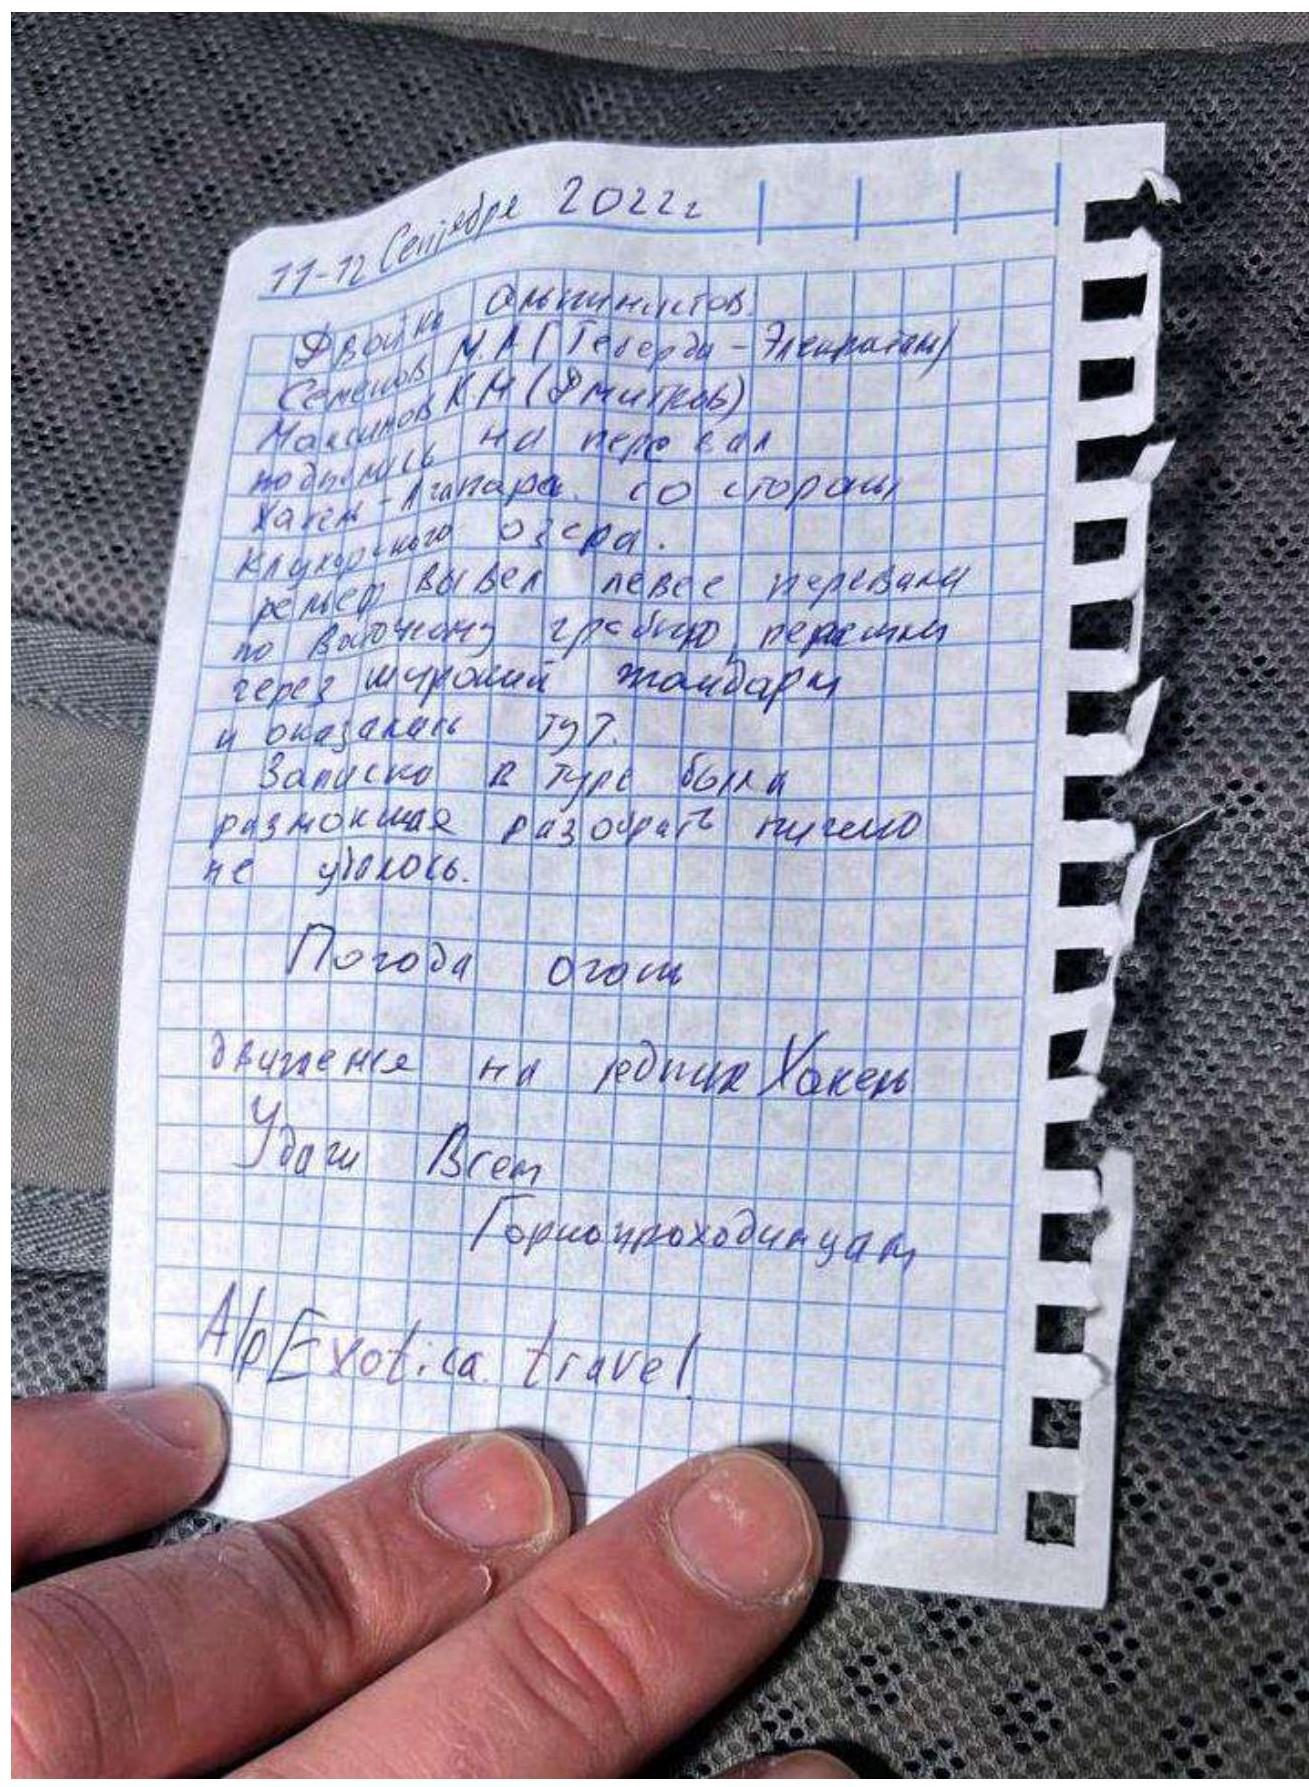 11-12 Сентября 2022г
Двойка альпинистов
Семенов М.А (Теберда-
Максимов К.М (Дмитров)
поднялись на перевал
со стороны
Клухорского озера.
рельеф вывел левее перевала
по восточному гребню, перешли
через широкий жандарм
и оказались тут.
Записка в туре была
размокшая разобрать ничего
не удалось.
Погода огонь
движемся на ледник Хакель
Удачи Всем
Горнопроходимцам
AlpExotica.travel